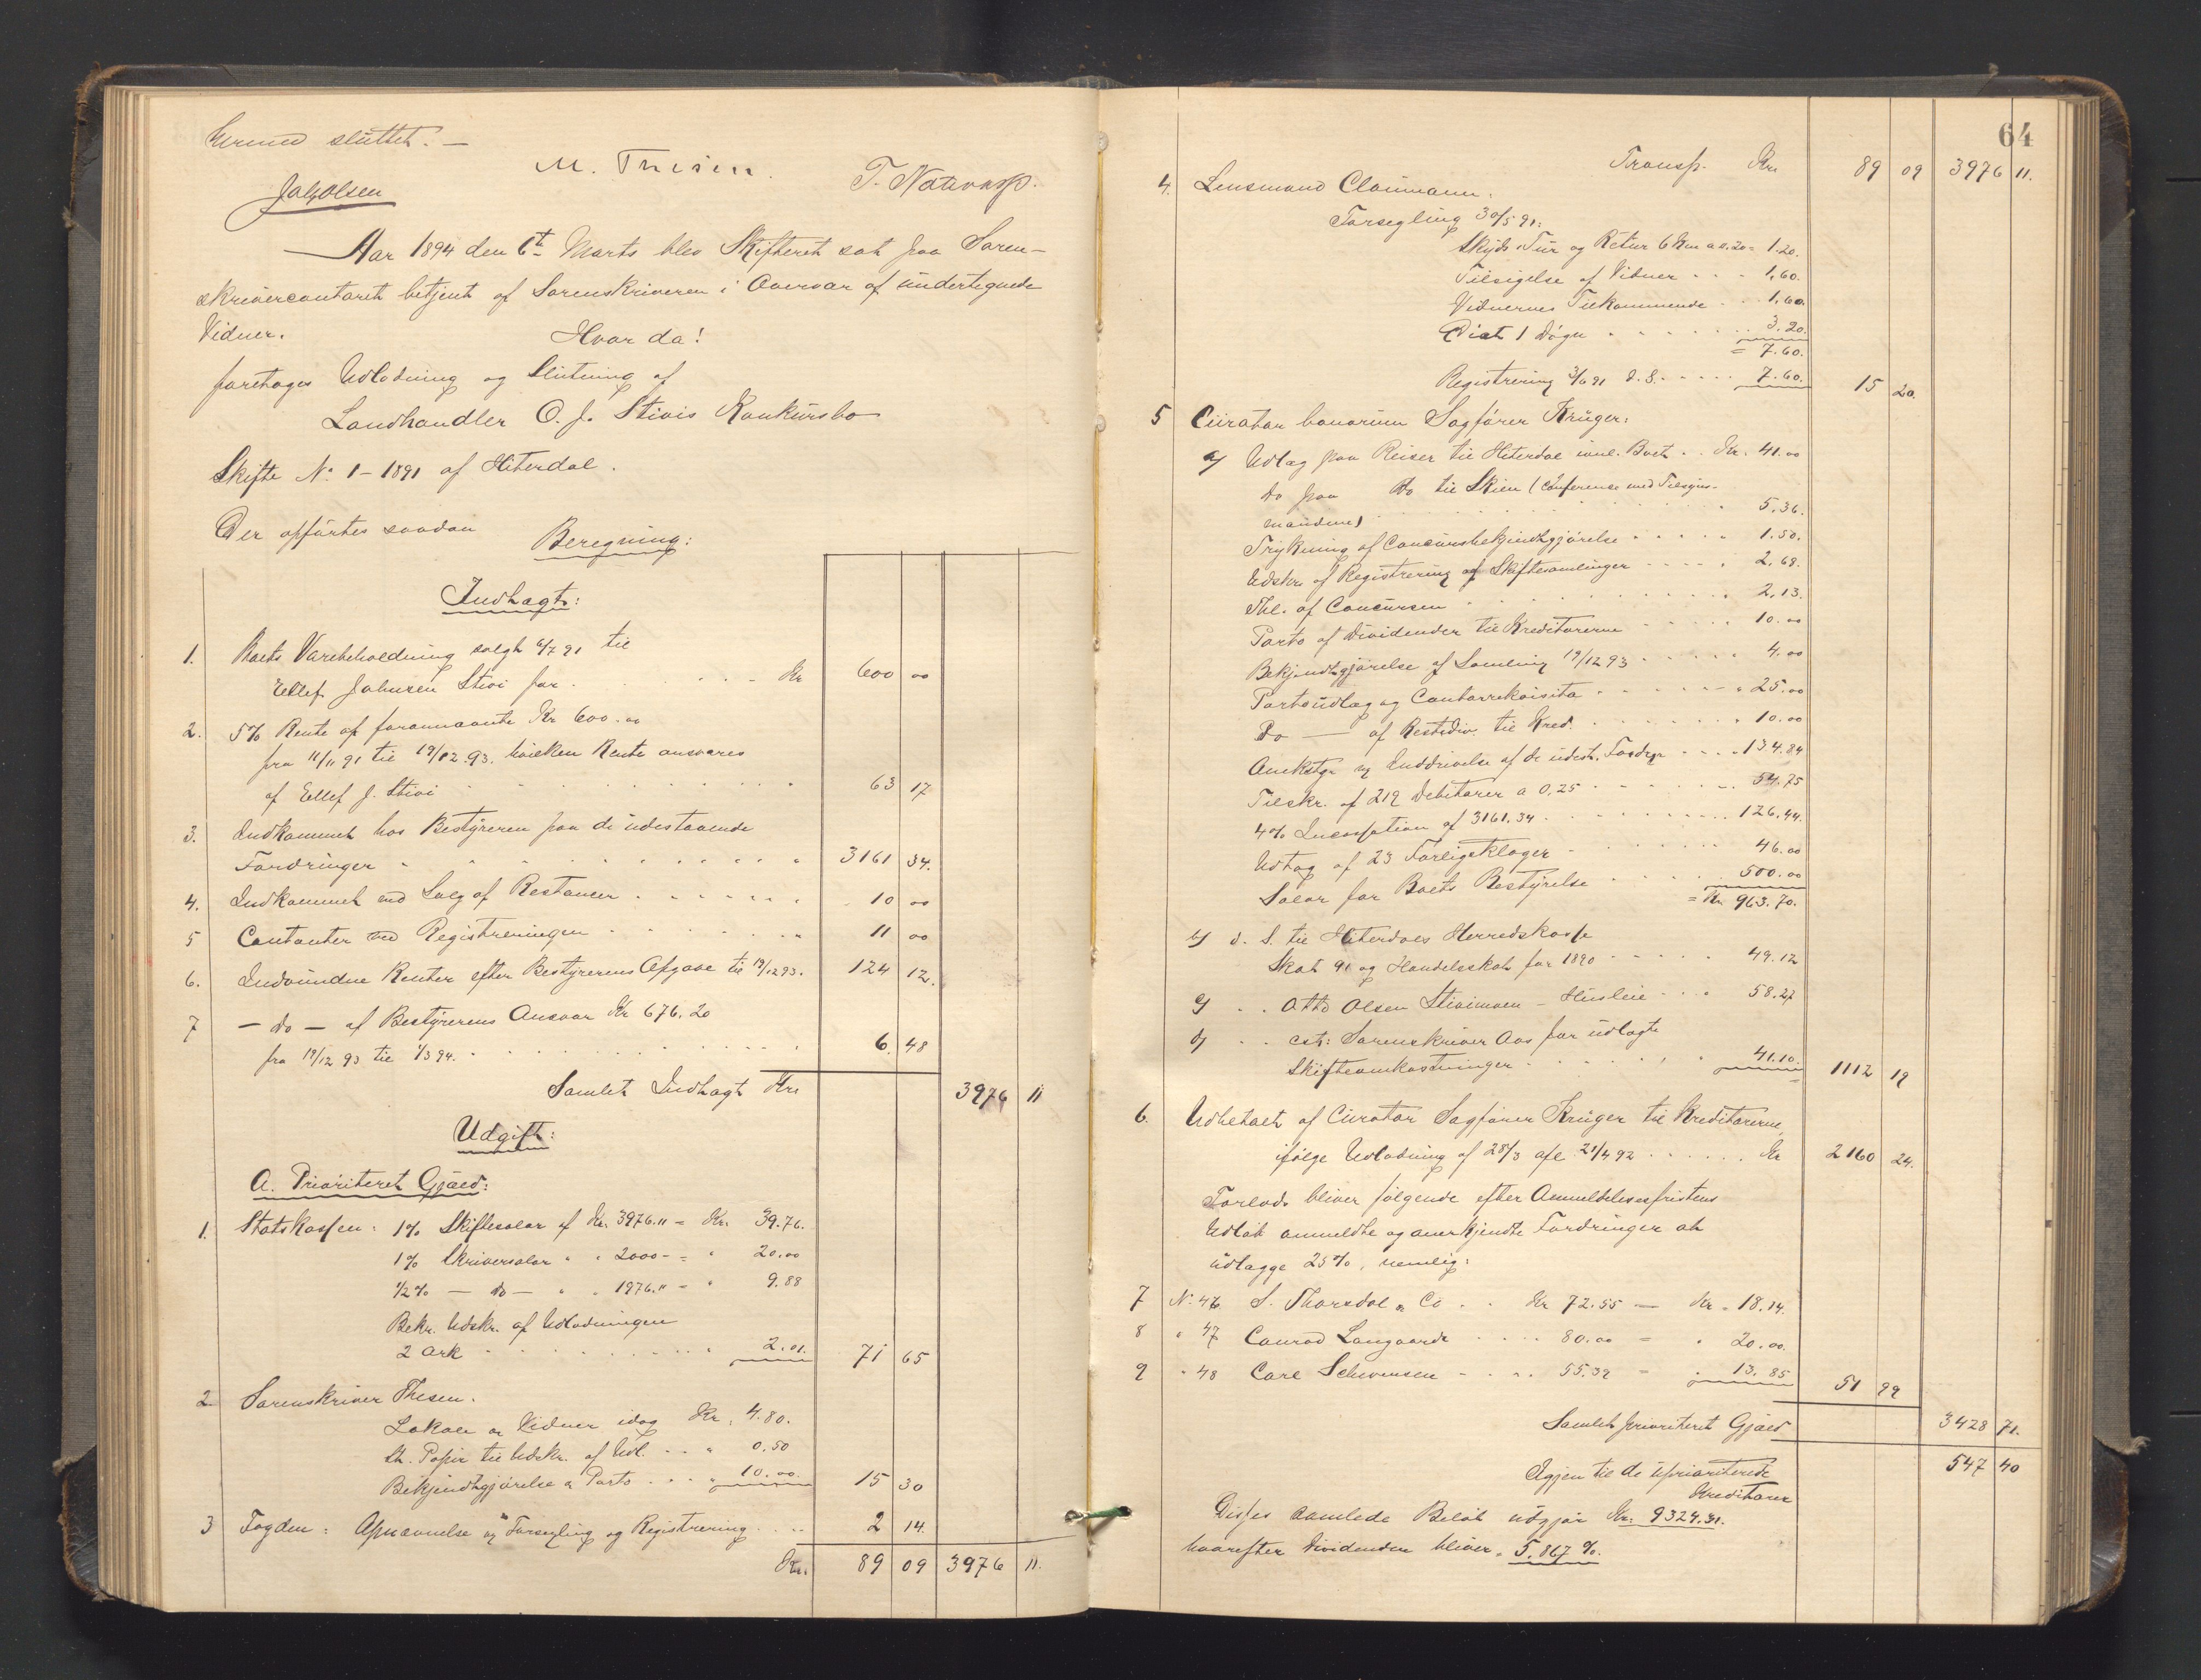 hermed sluttet. —
M. Thesen.
T. Naterasp.
Jah. Olsen
Aar 1894 den 6te Marts blev Skifteret sat paa Soren-
skrivercontoret betjent af Sorenskriveren i Overvær af undertegnede
Vidner.
Hvor da!
foretoges Udlodning og Slutning af
Landhandler O. J. Stivis Konkursbo
Skifte No 1 – 1891 af Hiterdal.
Der opførtes saadan
Beregning:
Indtægt:
1. Boets Varebeholdning solgt 6/7 91 til
Ellef Johnsen Stivi for . . . . Kr 600 00
2. 5% Rente af forannævnte Kr 600.00
fra 11/11 91 til 19/12 93, hvilken Rente ansvares
af Ellef J. Stivi . . . . 63 17
3. Indkommet hos Bestyreren paa de udestaaende
Fordringer . . . . 3161 34.
4. Indkommet ved Salg af Restancer . . . . 10 00
5 Contanter ved Registreringen . . . . 11 00
6. Indvundne Renter efter Bestyrerens Opgave til 19/12 93. 124 12.
7 — do — af Bestyrerens Ansvar Kr 676.20
fra 19/12 93 til 1/3 94. . . . . 6. 48
Samlet Indtægt Kr 3976 11
Udgift:
A. Prioriteret Gjæld:
1. Statskassen: 1% Skiftesalær af Kr. 3976.11 = Kr. 39.76.
1% Skriversalær " " 2000 - = " 20.00
1/2% — do — " " 1976.11 = " 9.88
Bekr. Udskr. af Udlodningen
2 Ark . . . . 2.01. 71 65
2 Sorenskriver Thesen.
Lokale og Vidner idag Kr. 4.80.
St. Papir til Udskr. af Udl. . . " 0.50
Bekjendtgjørelse & Porto . . . " 10.00. 15 30
3 Fogden: Opnævnelse og Forsegling og Registrering . . . 2 14.
Kr. 89 09 3976 11.
64
Transp. Kr 89 09 3976 11.
4. Lensmand Claumann.
Forsegling 30/5 91:
Skyds Tur og Retur 6 Km a 0.20 = 1.20.
Tilsigelse af Vidner . . . 1.60.
Vidnernes Tilkommende . . . 1.60.
Diæt 1 Døgn . . . . 3.20.
= 7.60.
Registrering 3/6 91 d. S. . . . . 7.60. 15 20.
5 Curator bonorum Sagfører Krüger:
a) Udlæg paa Reiser til Hiterdal innl. Boet . . Kr. 41.00
do paa do til Skien (Conference med Tilsyns-
mændene) . . . . 5.36.
Trykning af Concursbekjendtgjørelse . . . . 1.50.
Udskr. af Registrering og Skiftesamlinger . . . . 2.68.
Thl. af Concursen . . . . 2.13.
Porto af Dividender til Kreditorerne . . . . 10.00
Bekjendtgjørelse af Samling 19/12 93 . . . . 4.00
Portoudlæg og Contorrekvisita . . . . 25.00
Do — af Restdiv. til Kred. . . . . 10.00
Omkstgr. og Inddrivelse af de udest. Fordrgr . . . 134.84
Tilskr. af 219 Debitorer a 0,25 . . . . 54.75
4% Incassation af 3161.34 . . . . 126.44.
Udtag af 23 Forligsklager . . . . 46.00
Salær for Boets Bestyrelse . . . . 500.00
= Kr 963.70.
b) d. S. til Hiterdals Herredskasse
Skat 91 og Handelsskat for 1890 . . . . 49.12
c) . . Otto Olsen Stivimoen – Husleie . . . 58.27
d) . . cst: Sorenskriver Aas for udlagte
Skifteomkostninger . . . . 41.10. 1112 19
6. Udbetalt af Curator Sagfører Krüger til Kreditorerne
ifølge Udlodning af 28/3 afl 21/4 92 . . . . Kr 2160 24.
Forlods bliver følgende efter Anmeldelsesfristens
Udløb anmeldte og anerkjendte Fordringer at
udlægge 25%, nemlig:
7 No 46 S. Thorsdal & Co . . Kr 72.55 — Kr. 18.14.
8 " 47 Conrad Langaard . . . 80.00 = " 20.00.
9 " 48 Carl Schwensen . . . 55.39 = " 13.85 51 99
Samlet prioriteret Gjæld 3428 71.
Igjen til de uprioriterede
Kreditorer 547 40
Disses samlede Beløb udgjør Kr. 9329.31.
hvorefter Dividenden bliver = 5.867 %.